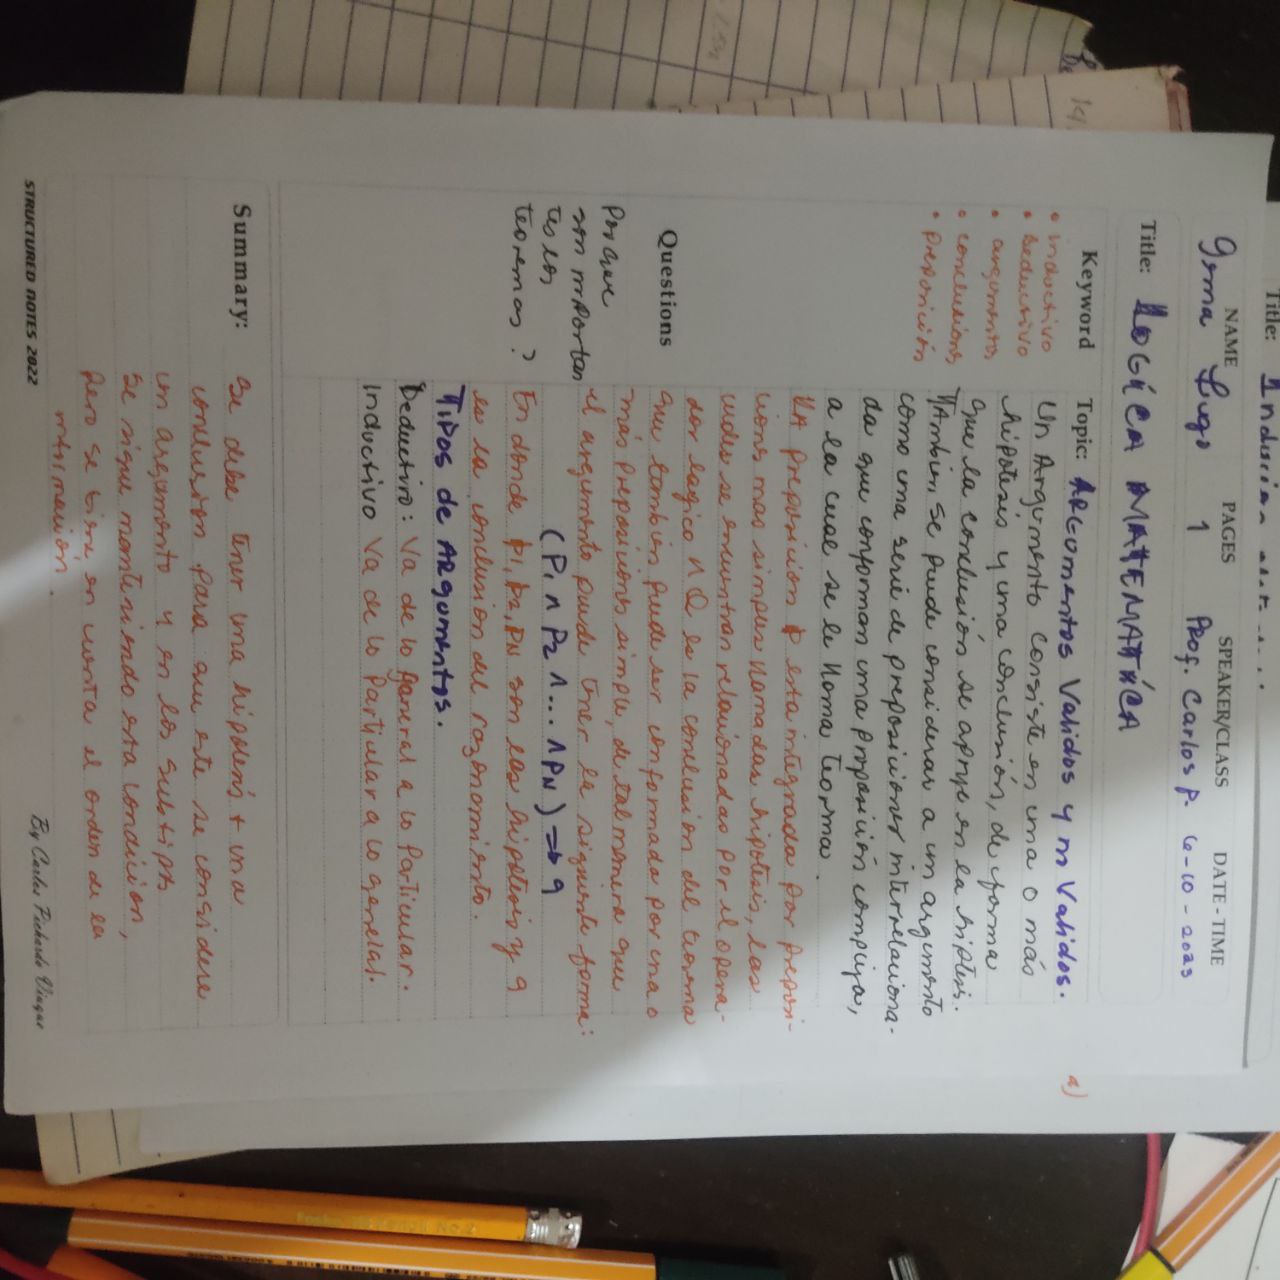 Title: Inducción
NAME PAGES SPEAKER/CLASS DATE - TIME
Irma Lugo 1 Prof. Carlos P. 6-10-2023
Title: LOGÍCA MATEMATÍCA
Keyword
• inductivo
• Deductivo
• argumentos
• conclusions
• preposición
Topic: ARGumentos Validos y in Validos.
Un Argumento consiste en una o más
hipotesis y una conclusión, de forma
que la conclusión se apoye en la hipotesis.
TAmbien se puede considerar a un argumento
como una serie de preposiciones interrelaciona-
da que conforman una proposición compleja,
a la cual se le llama teorema.
LA preposicion p esta integrada por preposi-
ciones mas simples llamadas hipotesis, las
cuales se encuentran relacionadas por el opera-
dor logico ∧ Q es la conclusion del teorema
que tambien puede ser conformado por una o
más preposiciones simple, de tal manera que
el argumento puede tener la siguiente forma:
(P1 ∧ P2 ∧ ... ∧ PN) → q
En donde p1, p2, PN son las hipotesis y q
es la conclusion del razonamiento.
TIPOS de ARgumentos.
Deductivo: Va de lo general a lo particular.
Inductivo Va de lo Particular a lo general.
Questions
Por que
son importan
tes los
teoremas ?
Summary: Se debe tener una hipotesis + una
conclusion para que este se considere
un argumento y en los subtipos
se sigue manteniendo esta condicion,
pero se tiene en cuenta el orden de la
información.
STRUCTURED NOTES 2022
By Carlos Pichardo Viuque
a)
14.